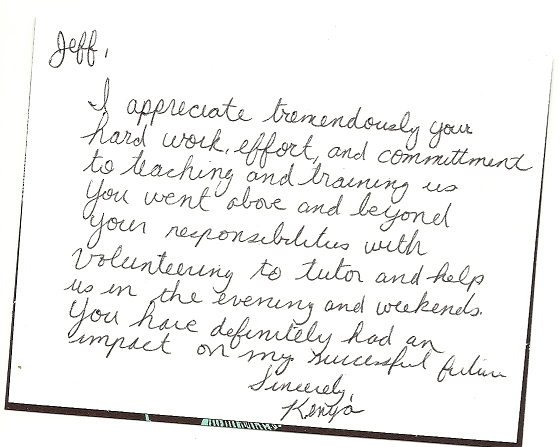 Jeff,
I appreciate tremendously your
hard work, effort, and committment
to teaching and training us
You went above and beyond
your responsibilities with
volunteering to tutor and help
us in the evening and weekends.
You have definitely had an
impact on my successful future
Sincerely,
Kenya